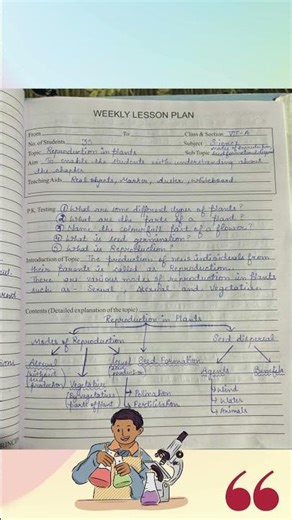 WEEKLY LESSON PLAN
From To Class & Section VII-A
No. of Students 35 Subject Science
Topic Reproduction in Plants Sub Topic
Aim To enable the students with understanding about
the chapter
Teaching Aids Real objects, Marker, duster, whiteboard
P.K. Testing ① What are some different types of plants?
② What are the parts of a plant?
③ Name the colourfull part of a flower?
④ What is seed germination?
⑤ What is Reproduction?
Introduction of Topic The production of new individuals from
their parents is called as Reproduction.
There are various modes of reproduction in Plants
such as - Sexual, Asexual and Vegetative.
Contents (Detailed explanation of the topic)
Reproduction in Plants
Modes of Reproduction Seed Formation Seed dispersal
Asexual Sexual Agents Benefits
Vegetative → Pollination → Wind
(By vegetative → Fertilisation → Water
parts of plant) → Animals